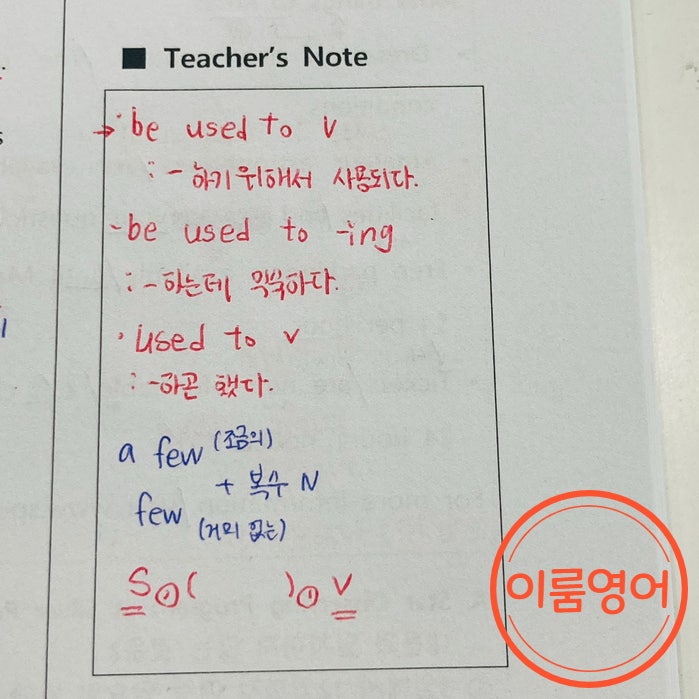 ■ Teacher's Note
→ · be used to V
: ~하기위해서 사용되다.
- be used to -ing
: ~하는데 익숙하다.
· used to V
: ~하곤 했다.
a few (조금의)
+ 복수 N
few (거의 없는)
S⊙( )⊙ V
이룸영어